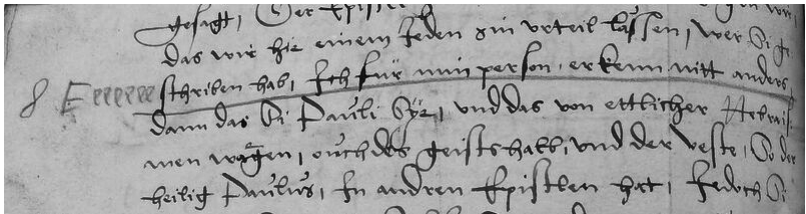 gesagt, Der Epistel
das wir hie einem Jeden sin vrteil lassen, wer Si ge
schriben hab, Ich für min person, erkenn nitt anders,
dann das Si Pauli Sye, vnd das von ettlicher Hebrais
men wägen, ouch des geists halb, vnd der veste, So der
heilig Paulus, In andren Epistlen hat, Jedoch Si